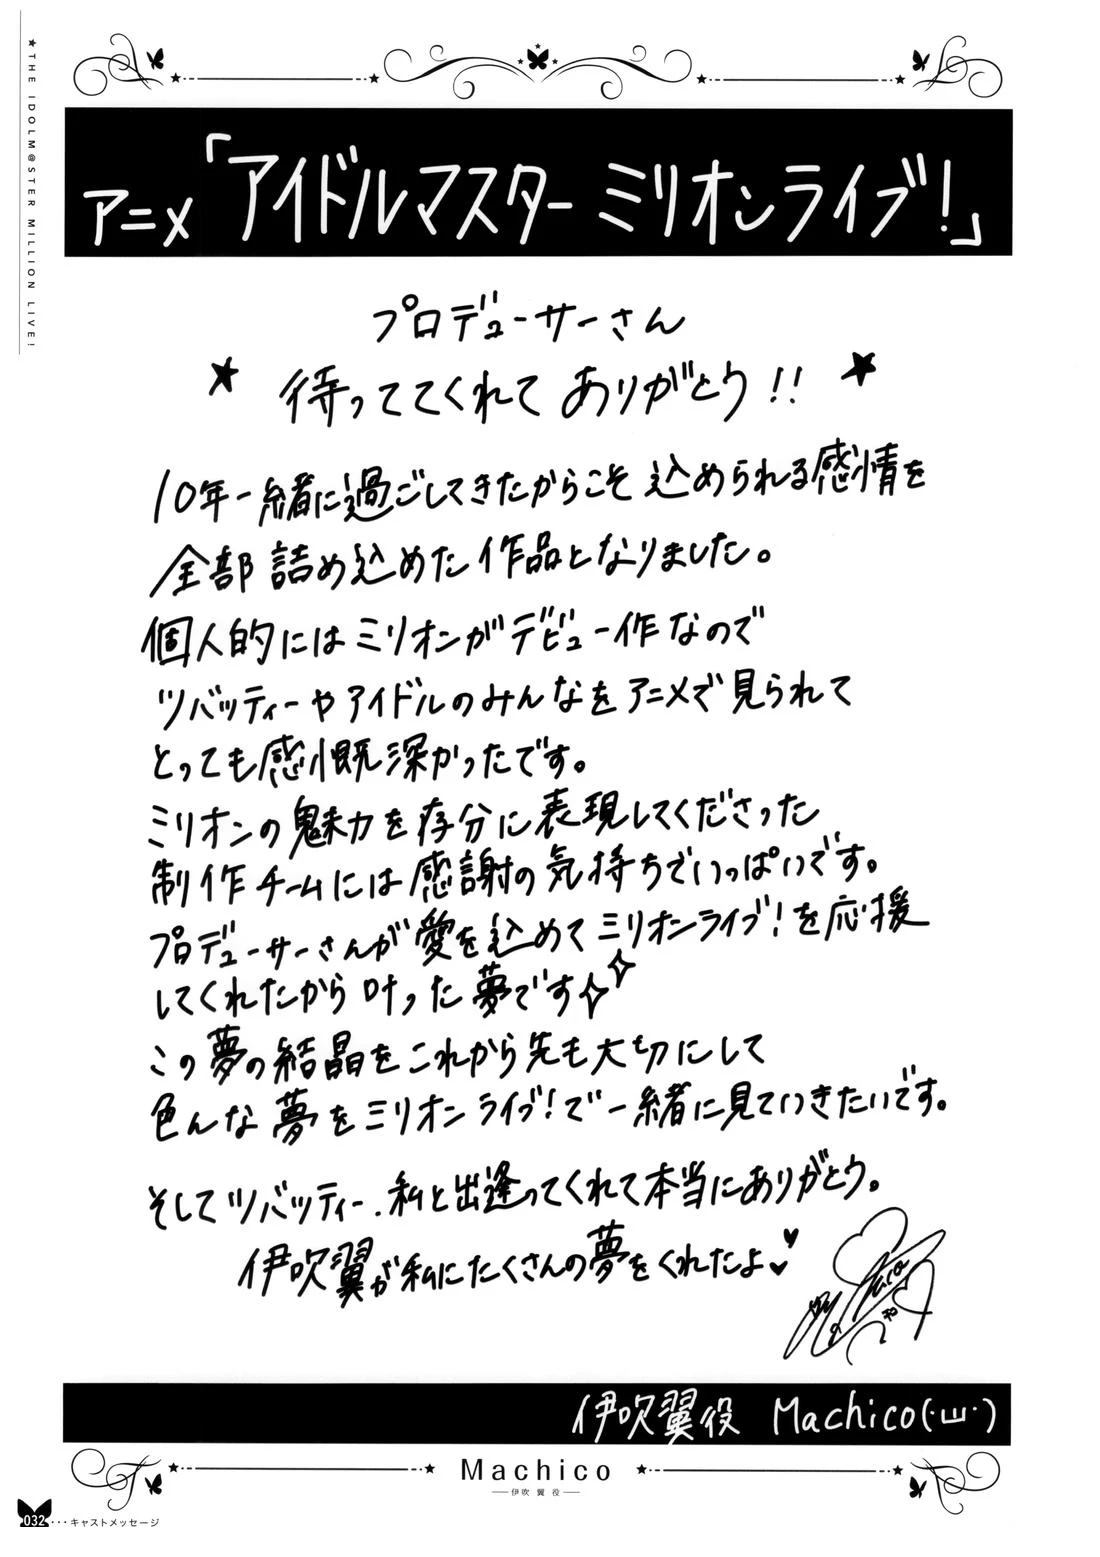 ★THE IDOLM@STER MILLION LIVE!
アニメ「アイドルマスター ミリオンライブ!」
プロデューサーさん
★ 待っててくれて ありがとう!! ★
10年一緒に過ごしてきたからこそ 込められる感情を
全部 詰め込めた 作品となりました。
個人的には ミリオンが デビュー作なので
ツバッティーや アイドルのみんなを アニメで 見られて
とっても感慨深かったです。
ミリオンの 魅力を 存分に 表現してくださった
制作チームには 感謝の気持ちでいっぱいです。
プロデューサーさんが 愛を込めて ミリオンライブ!を応援
してくれたから 叶った 夢です✧✧
この夢の結晶を これから先も 大切にして
色んな 夢を ミリオンライブ!で 一緒に見ていきたいです。
そして ツバッティー.私と出逢ってくれて本当にありがとう。
伊吹翼が私にたくさんの夢をくれたよ♥♥
伊吹翼役 Machico(・ш・)
Machico
伊吹 翼 役
032・・・キャストメッセージ